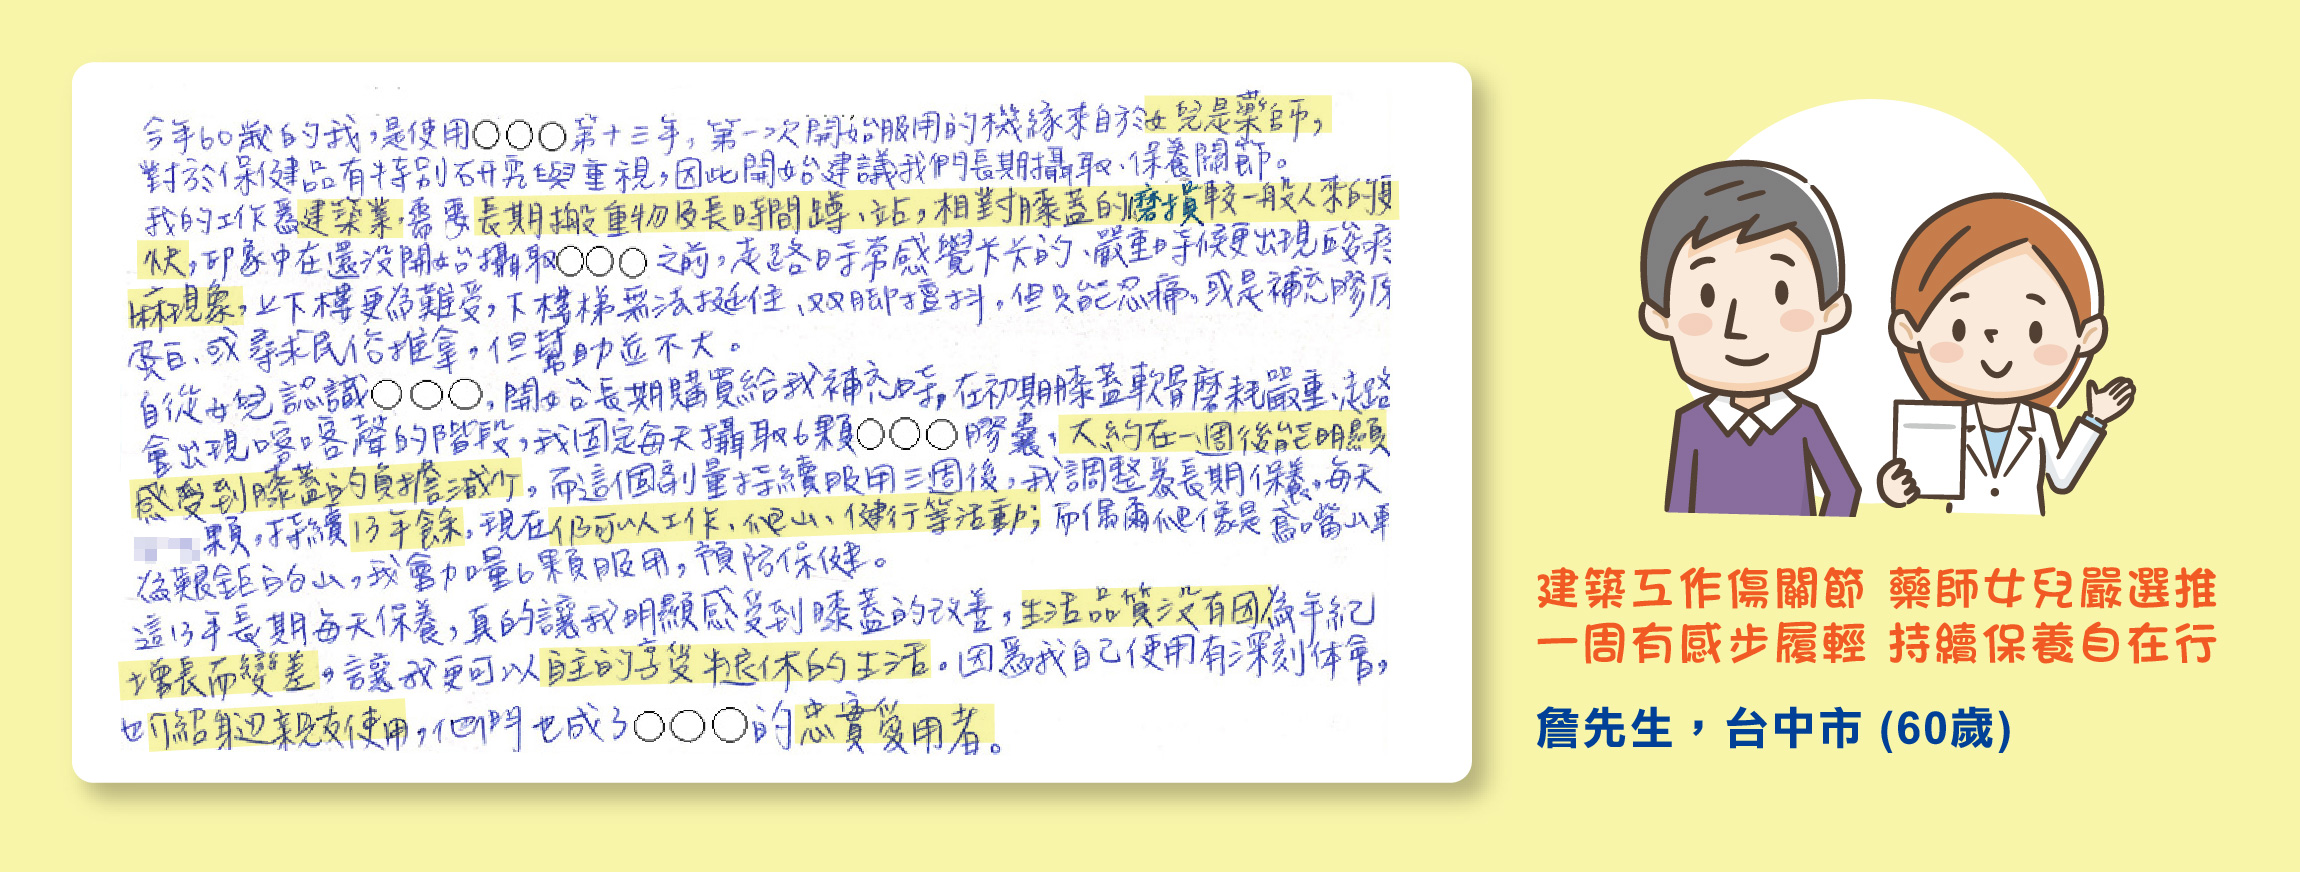 今年60歲的我，是使用○○○第十三年，第一次開始服用的機緣來自於女兒是藥師，
對於保健品有特別研究與重視，因此開始建議我們長期攝取、保養關節。
我的工作為建築業，需要長期搬重物及長時間蹲、站，相對膝蓋的磨損較一般人來的更
快，印象中在還沒開始攝取○○○之前，走路時常感覺卡卡的、嚴重時候更出現痠疼
麻現象，上下樓更為難受，下樓梯無法挺住、双腳擅抖，但只能忍痛，或是補充膠原
蛋白、或尋求民俗推拿，但幫助並不大。
自從女兒認識○○○，開始長期購買給我補充時，在初期膝蓋軟骨磨耗嚴重、走路
會出現喀喀聲的階段，我固定每天攝取6顆○○○膠囊，大約在一週後能明顯
感受到膝蓋的負擔減少，而這個劑量持續服用三週後，我調整為長期保養，每天
顆，持續13年餘，現在仍可以工作、爬山、健行等活動；而偶爾爬像是鳶嘴山較
為艱鉅的台山，我會加量6顆服用，預防保健。
這13年長期每天保養，真的讓我明顯感受到膝蓋的改善，生活品質沒有因為年紀
增長而變差，讓我更可以自主的享受半退休的生活。因為我自己使用有深刻体會，
也介紹身边親友使用，他們也成了○○○的忠實愛用者。
建築工作傷關節 藥師女兒嚴選推
一周有感步履輕 持續保養自在行
詹先生，台中市 (60歲)